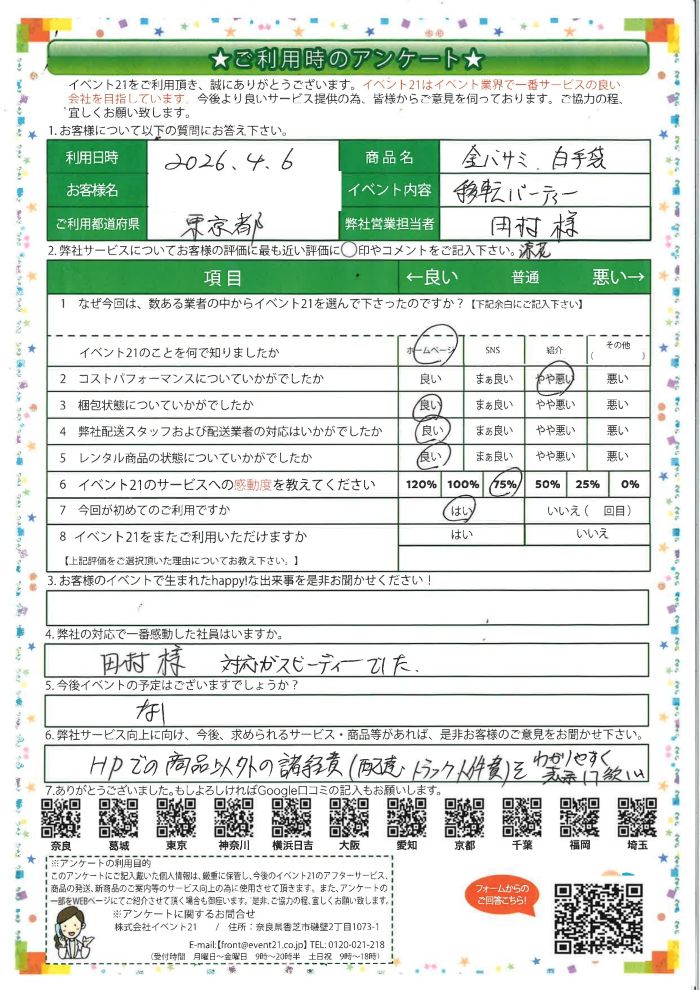 ★ご利用時のアンケート★
イベント21をご利用頂き、誠にありがとうございます。イベント21はイベント業界で一番サービスの良い
会社を目指しています。今後より良いサービス提供の為、皆様からご意見を伺っております。ご協力の程、
宜しくお願い致します。
1.お客様について以下の質問にお答え下さい。
利用日時 2026.4.6 商品名 金バサミ、白手袋
お客様名 イベント内容 移転パーティー
ご利用都道府県 東京都 弊社営業担当者 田村 様
2.弊社サービスについてお客様の評価に最も近い評価に◯印やコメントをご記入下さい。
項目 ←良い 普通 悪い→
1 なぜ今回は、数ある業者の中からイベント21を選んで下さったのですか？【下記余白にご記入下さい】
イベント21のことを何で知りましたか ホームページ SNS 紹介 その他 ( )
2 コストパフォーマンスについていかがでしたか 良い まぁ良い やや悪い 悪い
3 梱包状態についていかがでしたか 良い まぁ良い やや悪い 悪い
4 弊社配送スタッフおよび配送業者の対応はいかがでしたか 良い まぁ良い やや悪い 悪い
5 レンタル商品の状態についていかがでしたか 良い まぁ良い やや悪い 悪い
6 イベント21のサービスへの感動度を教えてください 120% 100% 75% 50% 25% 0%
7 今回が初めてのご利用ですか はい いいえ ( 回目)
8 イベント21をまたご利用いただけますか はい いいえ
【上記評価をご選択頂いた理由についてお教え下さい。】
3.お客様のイベントで生まれたhappy!な出来事を是非お聞かせください！
4.弊社の対応で一番感動した社員はいますか。
田村 様 対応がスピーディーでした.
5.今後イベントの予定はございますでしょうか？
なし
6.弊社サービス向上に向け、今後、求められるサービス・商品等があれば、是非お客様のご意見をお聞かせ下さい。
HPでの商品以外の諸経費(配達・トラック人件費)を わかりやすく
表示して欲しい
7.ありがとうございました。もしよろしければGoogle口コミの記入もお願いします。
奈良 葛城 東京 神奈川 横浜日吉 大阪 愛知 京都 千葉 福岡 埼玉
※アンケートの利用目的
このアンケートにご記入戴いた個人情報は、厳重に保管し、今後のイベント21のアフターサービス、
商品の発送、新商品のご案内等のサービス向上の為に使用させて頂きます。また、アンケートの
一部をWEBページにてご紹介させて頂く場合も御座います。是非、ご協力の程、宜しくお願い致します。
※アンケートに関するお問合せ
株式会社イベント21 / 住所：奈良県香芝市磯壁2丁目1073-1
E-mail:【front@event21.co.jp】 TEL: 0120-021-218
(受付時間 月曜日〜金曜日 9時〜20時半 土日祝 9時〜18時)
フォームからの
ご回答こちら！